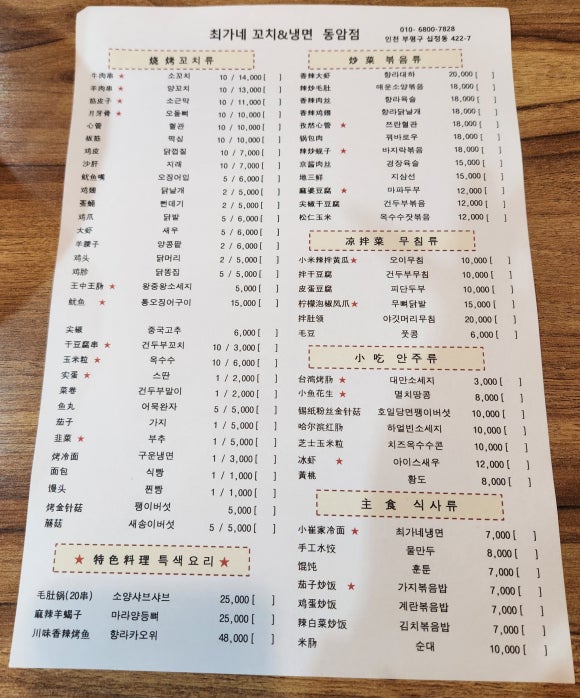 최가네 꼬치&냉면 동암점
010- 6800-7828
인천 부평구 십정동 422-7
燒烤꼬치류
牛肉串 ★ 소꼬치 10 / 14,000 [ ]
羊肉串 ★ 양꼬치 10 / 13,000 [ ]
筋皮子 ★ 소근막 10 / 11,000 [ ]
月牙骨 ★ 오돌뼈 10 / 10,000 [ ]
心管 혈관 10 / 10,000 [ ]
板筋 떡심 10 / 10,000 [ ]
鸡皮 닭껍질 10 / 7,000 [ ]
沙肝 지래 10 / 7,000 [ ]
鱿鱼嘴 오징어입 5 / 6,000 [ ]
鸡翅 닭날개 2 / 5,000 [ ]
蚕蛹 뻔데기 2 / 5,000 [ ]
鸡爪 닭발 5 / 6,000 [ ]
大虾 새우 5 / 6,000 [ ]
羊腰子 양콩팥 2 / 6,000 [ ]
鸡头 닭머리 2 / 5,000 [ ]
鸡胗 닭똥집 5 / 5,000 [ ]
王中王肠 ★ 왕중왕소세지 5,000 [ ]
鱿鱼 ★ 통오징어구이 15,000 [ ]
尖椒 중국고추 6,000 [ ]
干豆腐串 ★ 건두부꼬치 10 / 3,000 [ ]
玉米粒 ★ 옥수수 10 / 6,000 [ ]
实蛋 ★ 스딴 1 / 2,000 [ ]
菜卷 건두부말이 1 / 2,000 [ ]
鱼丸 어묵완자 5 / 5,000 [ ]
茄子 가지 1 / 5,000 [ ]
韭菜 ★ 부추 1 / 5,000 [ ]
烤冷面 구운냉면 1 / 3,000 [ ]
面包 식빵 1 / 1,000 [ ]
馒头 찐빵 1 / 1,000 [ ]
烤金针菇 팽이버섯 5,000 [ ]
蘑菇 새송이버섯 5 / 5,000 [ ]
★ 特色料理 특색요리 ★
毛肚锅(20串) 소양샤브샤브 25,000 [ ]
麻辣羊蝎子 마라양등뼈 25,000 [ ]
川味香辣烤鱼 향라카오위 48,000 [ ]
炒菜 볶음류
香辣大虾 향라대하 20,000 [ ]
辣炒毛肚 매운소양볶음 18,000 [ ]
香辣肉丝 향라육슬 18,000 [ ]
香辣鸡翅 향라닭날개 18,000 [ ]
孜然心管 ★ 쯔란혈관 18,000 [ ]
锅包肉 꿔바로우 18,000 [ ]
辣炒蚬子 ★ 바지락볶음 18,000 [ ]
京酱肉丝 경장육슬 15,000 [ ]
地三鲜 지삼선 15,000 [ ]
麻婆豆腐 ★ 마파두부 12,000 [ ]
尖椒干豆腐 건두부볶음 12,000 [ ]
松仁玉米 옥수수잣볶음 12,000 [ ]
凉拌菜 무침류
小米辣拌黄瓜 ★ 오이무침 10,000 [ ]
拌干豆腐 건두부무침 10,000 [ ]
皮蛋豆腐 피단두부 10,000 [ ]
柠檬泡椒凤爪 ★ 무뼈닭발 15,000 [ ]
拌肚领 야깃머리무침 20,000 [ ]
毛豆 풋콩 6,000 [ ]
小吃 안주류
台湾烤肠 ★ 대만소세지 3,000 [ ]
小鱼花生 ★ 멸치땅콩 8,000 [ ]
锡纸粉丝金针菇 호일당면팽이버섯 10,000 [ ]
哈尔滨红肠 하얼빈소세지 10,000 [ ]
芝士玉米粒 치즈옥수수콘 10,000 [ ]
冰虾 ★ 아이스새우 12,000 [ ]
黄桃 황도 8,000 [ ]
主食 식사류
小崔家冷面 ★ 최가네냉면 7,000 [ ]
手工水饺 물만두 8,000 [ ]
馄饨 훈툰 7,000 [ ]
茄子炒饭 ★ 가지볶음밥 7,000 [ ]
鸡蛋炒饭 계란볶음밥 7,000 [ ]
辣白菜炒饭 김치볶음밥 7,000 [ ]
米肠 순대 10,000 [ ]